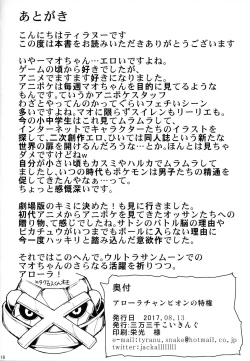 あとがき
こんにちはティラヌーです
この度は本書をお読みいただきありがとうございます
いやーマオちゃん…エロいですよね。
ゲームの頃から好きでしたが、
アニメでますます好きになりました。
アニポケは毎週マオちゃんを目的に見てるような
もんです。ていうかアニポケスタッフ
わざとやってんのかってぐらいフェチいシーン
多いですよね。マオに限らずスイレンもリーリエも。
今の小中学生はこれ見てムラムラして、
インターネットでキャラクターたちのイラストを
探して、二次創作エロ、ひいては同人誌という新たな
世界の扉を開けるんだろうな…とか。ほんとは見ちゃ
ダメですけどねw
自分が小さい頃もカスミやハルカでムラムラして
ましたし、いつの時代もポケモンは男子たちの精通を
促してきたんやなぁ…って、
ちょっと感慨深いです。
劇場版のキミに決めた！も見に行きました。
初代アニメからアニポケを見てきたオッサンたちへの
贈り物、て感じでしたけど、サトシのバトル脳の理由や
ピカチュウがいつまでもボールに入らない理由に
今一度ハッキリと踏み込んだ意欲作でした。
それではこのへんで。ウルトラサンムーンでの
マオちゃんのさらなる活躍を祈りつつ。
アローラ！
奥付
アローラチャンピオンの特権
発行日　2017.08.13
発行:三万三千こいきんぐ
印刷:栄光　様
e-mail:tyranu_snake@hotmail.co.jp
18